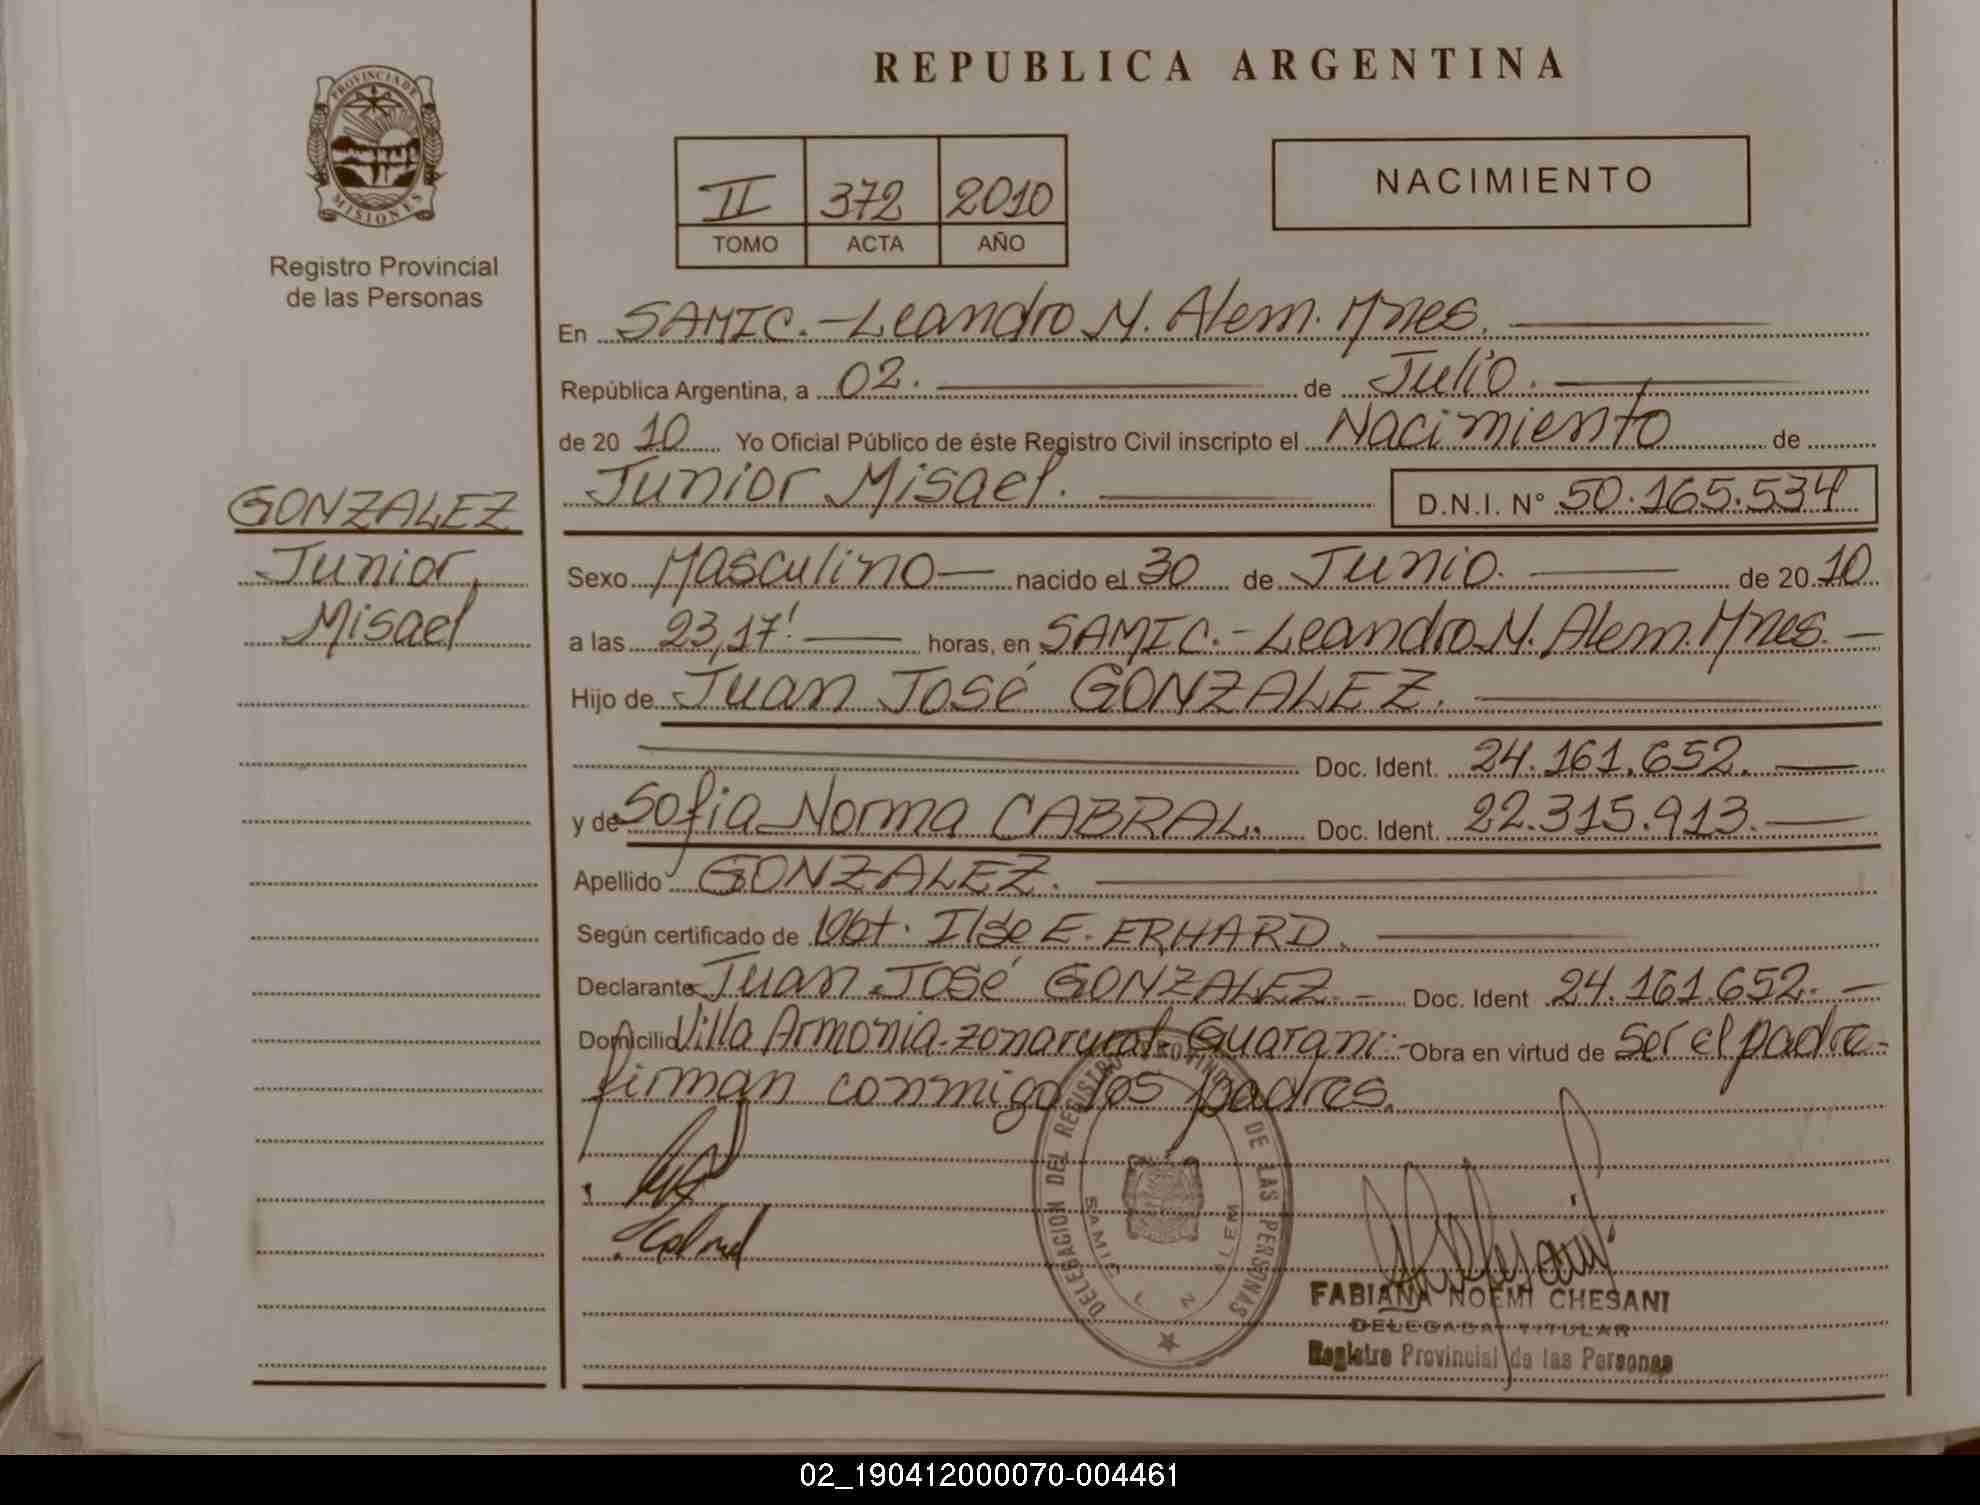 PROVINCIA DE
MISIONES
Registro Provincial
de las Personas
GONZALEZ
Junior
Misael
REPUBLICA ARGENTINA
II 372 2010
TOMO ACTA AÑO
NACIMIENTO
En SAMIC.-Leandro N. Alem. Mnes.
República Argentina, a 02. de Julio.
de 20 10 Yo Oficial Público de éste Registro Civil inscripto el Nacimiento de
Junior Misael. D.N.I. N° 50.165.534
Sexo Masculino nacido el 30 de Junio. de 20 10
a las 23,17' horas, en SAMIC.-Leandro N. Alem. Mnes.
Hijo de Juan José GONZALEZ.
Doc. Ident. 24.161.652.
y de Sofia Norma CABRAL. Doc. Ident. 22.315.913.
Apellido GONZALEZ.
Según certificado de Obt. Ilse E. ERHARD.
Declarante Juan José GONZALEZ.- Doc. Ident 24.161.652.-
Domicilio Villa Armonia-zona rural-Guarani.- Obra en virtud de ser el padre-
firman conmigo los padres.
DELEGACION DEL REGISTRO PROVINCIAL DE LAS PERSONAS
SAMIC L N ALEM
FABIANA NOEMI CHESANI
DELEGADA TITULAR
Registro Provincial de las Personas
02_190412000070-004461